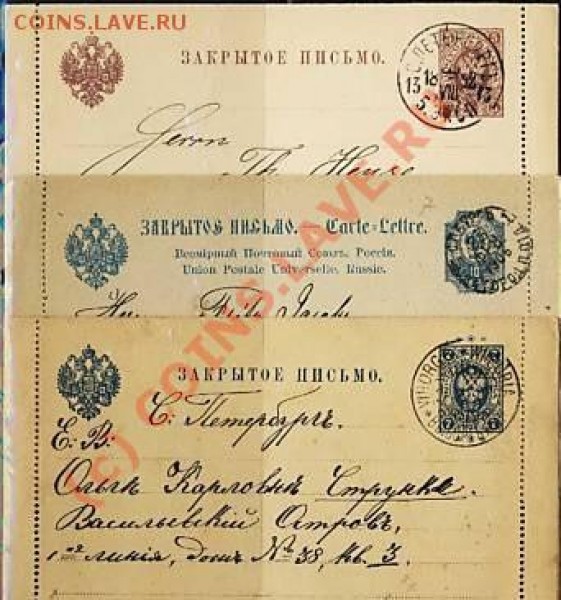 COINS.LAVE.RU
ЗАКРЫТОЕ ПИСЬМО.
С.ПЕТЕРБУРГЪ
18
13 VIII 13
Herrn
Th.
ЗАКРЫТОЕ ПИСЬМО. — Carte-Lettre.
Всемірный Почтовый Союзъ, Россія.
Union Postale Universelle, Russie.
ЗАКРЫТОЕ ПИСЬМО.
7 7
WIBORG
С. Петербургъ.
Е. В.
Ольгѣ Карловнѣ Струкке.
Васильевскій Островъ,
1-ая линія, домъ № 38, кв. 3.
(c) COINS.LAVE.RU